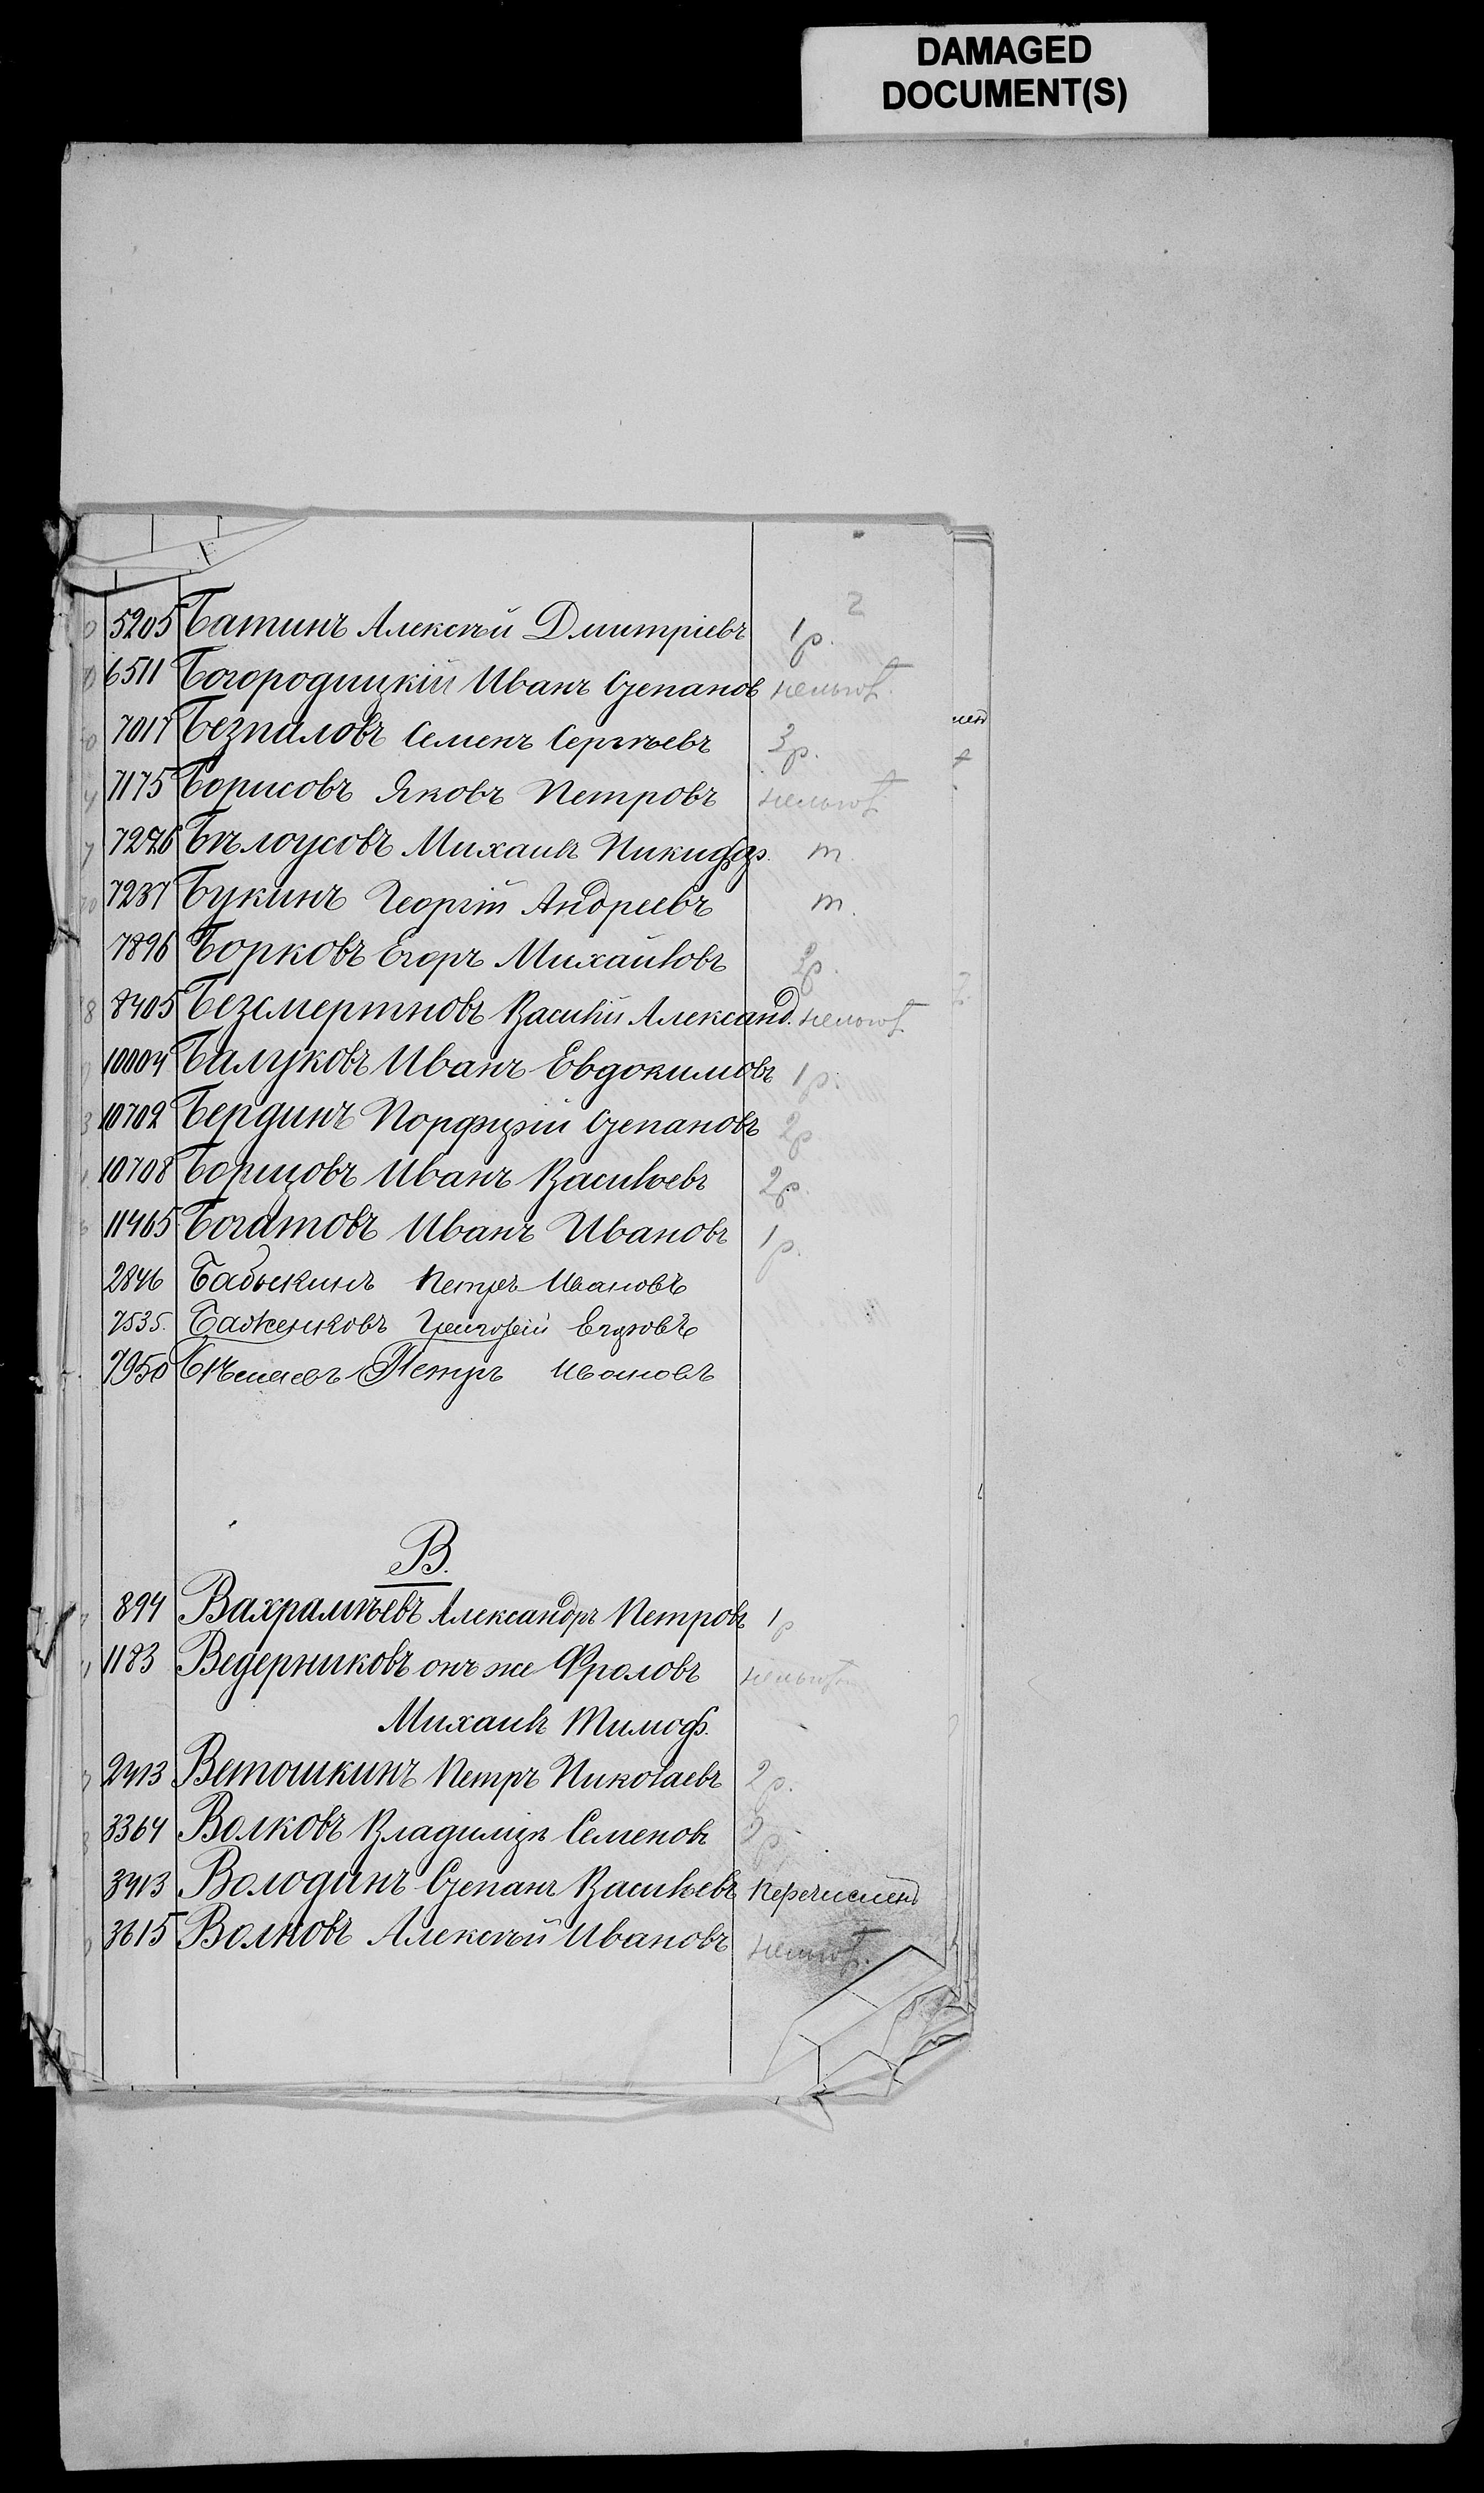 DAMAGED
DOCUMENT(S)
2
5205 Батинъ Алексѣй Дмитріевъ 1р.
6511 Богородицкій Иванъ Степанов нельгот.
7017 Безпаловъ Семенъ Сергѣевъ 3р.
7175 Борисовъ Яковъ Петровъ нельгот.
7226 Бѣлоусовъ Михаилъ Никифор. т.
7237 Букинъ Георгій Андреевъ т.
7896 Борковъ Егоръ Михайловъ 2р.
8405 Безсмертновъ Василій Александ. нельгот.
10004 Балуковъ Иванъ Евдокимовъ 1р.
10702 Бердинъ Порфирій Степановъ 2р
10708 Борщовъ Иванъ Васильевъ 2р.
11465 Богатовъ Иванъ Ивановъ 1р.
2846 Бабыкинъ Петръ Ивановъ
7535. Баженковъ Григорій Егоровъ
7950 Петръ Ивановъ
В.
894 Вахрамѣевъ Александръ Петровъ 1р
1183 Ведерниковъ онъ же Фроловъ нельгот.
Михаилъ Тимоф.
2413 Ветошкинъ Петръ Николаевъ 2р.
3364 Волковъ Владиміръ Семеновъ
3413 Володинъ Степанъ Васильевъ Перечисленъ
3615 Волковъ Алексѣй Ивановъ нельгот.